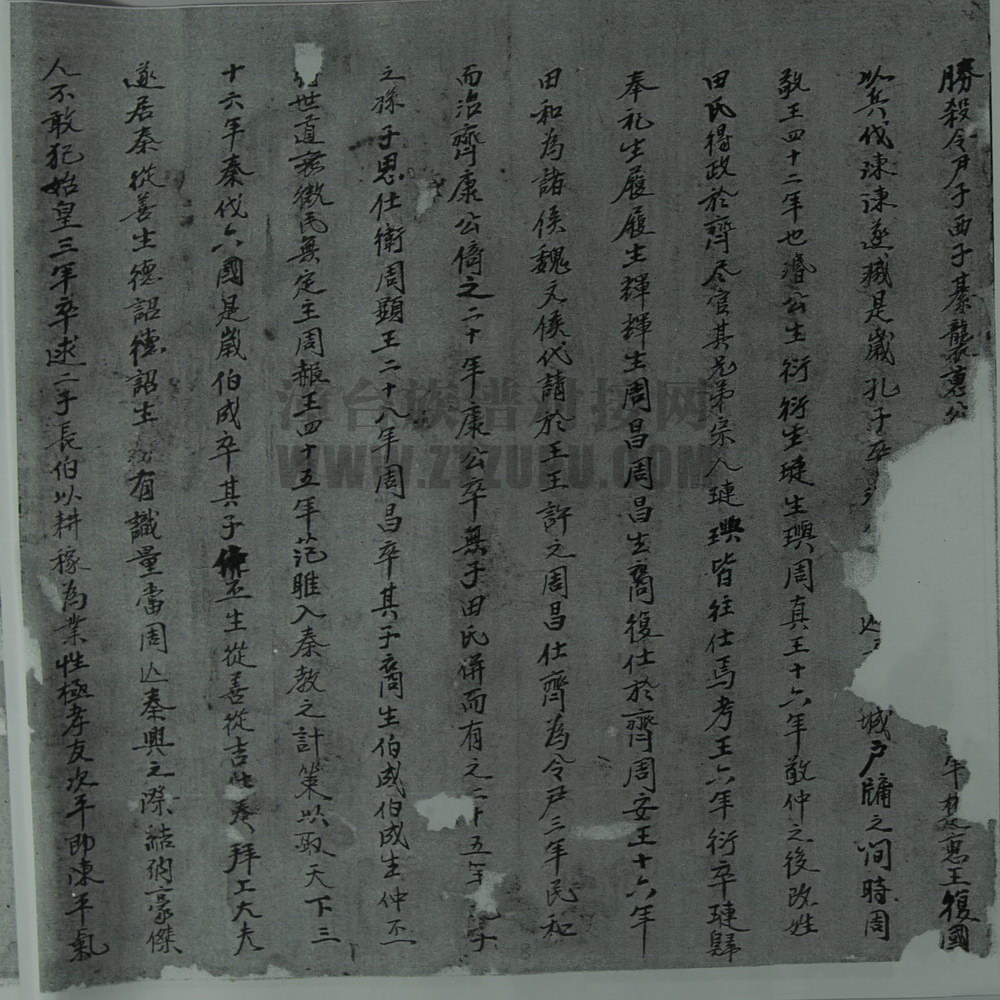 勝殺令尹子西子綦襲惠公 年楚惠王復國
以兵伐陳陳遂滅是歲孔子卒 城戶牖之間時周
敬王四十二年也湣公生衍衍生璉生璵周真王十六年敬仲之後改姓
田氏得政於齊尽官其兄弟宗人璉璵皆往仕焉考王六年衍卒璉歸
奉礼生履履生輝輝生周昌周昌生裔復仕於齊周安王十六年
田和為諸侯魏文侯代請於王王許之周昌仕齊為令尹三年民和
而治齊康公脩之二十年康公卒無子田氏併而有之二十五年 子
之孫子思仕衛周顯王二十八年周昌卒其子裔生伯成伯成生仲丕
世道無徵民無定主周赧王四十五年范雎入秦教之計策以取天下三
十六年秦伐六國是歲伯成卒其子丕生從善從吉仕秦拜工大夫
遂居秦從善生德詔德詔生 有識量當周亡秦興之際結納豪傑
人不敢犯始皇三年卒逑二子長伯以耕稼為業性極孝友次平即陳平氣
漳台族谱对接网
WWW.ZTZUPU.COM